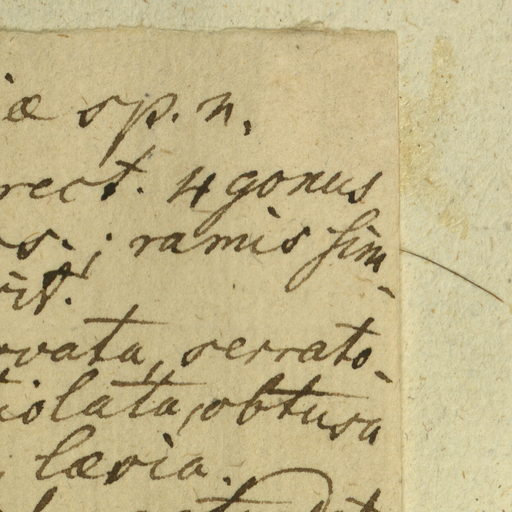 iæ sp. n.
rect. 4gonus
s.; ramis sim-
rit.
rvata, serrato-
tiolata, obtusa
lævia.